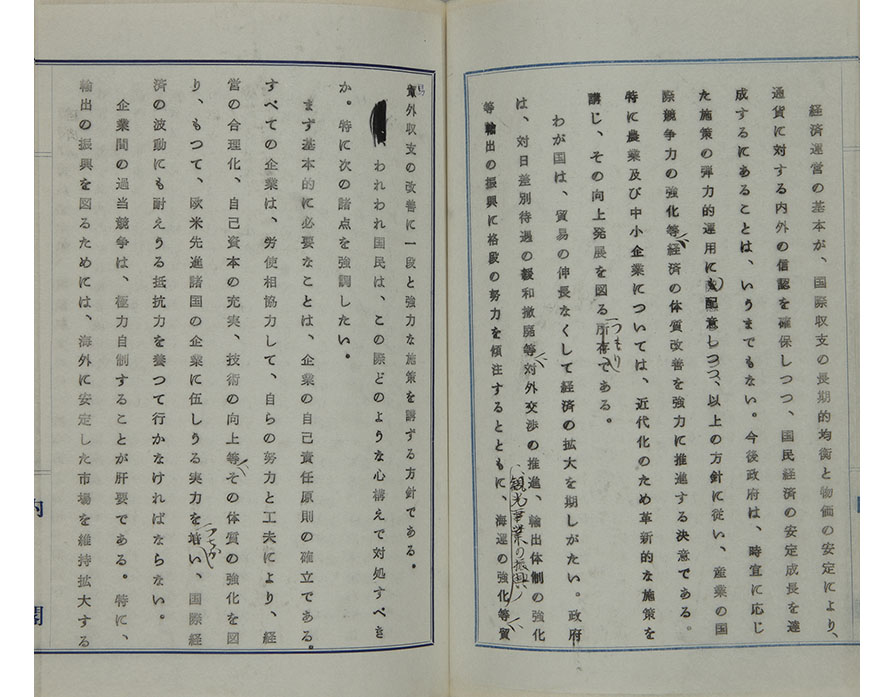 経済運営の基本が、国際収支の長期的均衡と物価の安定により、
通貨に対する内外の信認を確保しつつ、国民経済の安定成長を達
成するにあることは、いうまでもない。今後政府は、時宜に応じ
た施策の弾力的運用にも配意しつつ、以上の方針に従い、産業の国
際競争力の強化等経済の体質改善を強力に推進する決意である。
特に農業及び中小企業については、近代化のため革新的な施策を
講じ、その向上発展を図る所存である。
つもり
わが国は、貿易の伸長なくして経済の拡大を期しがたい。政府
は、対日差別待遇の緩和撤廃等対外交渉の推進、輸出体制の強化
観光事業の振興
等輸出の振興に格段の努力を傾注するとともに、海運の強化等貿
易
外収支の改善に一段と強力な施策を講ずる方針である。
われわれ国民は、この際どのような心構えで対処すべき
か。特に次の諸点を強調したい。
まず基本的に必要なことは、企業の自己責任原則の確立である。
すべての企業は、労使相協力して、自らの努力と工夫により、経
営の合理化、自己資本の充実、技術の向上等その体質の強化を図
り、もつて、欧米先進諸国の企業に伍しうる実力を培い、国際経
つちか
済の波動にも耐えうる抵抗力を養つて行かなければならない。
企業間の過当競争は、極力自制することが肝要である。特に、
輸出の振興を図るためには、海外に安定した市場を維持拡大する
内
閣